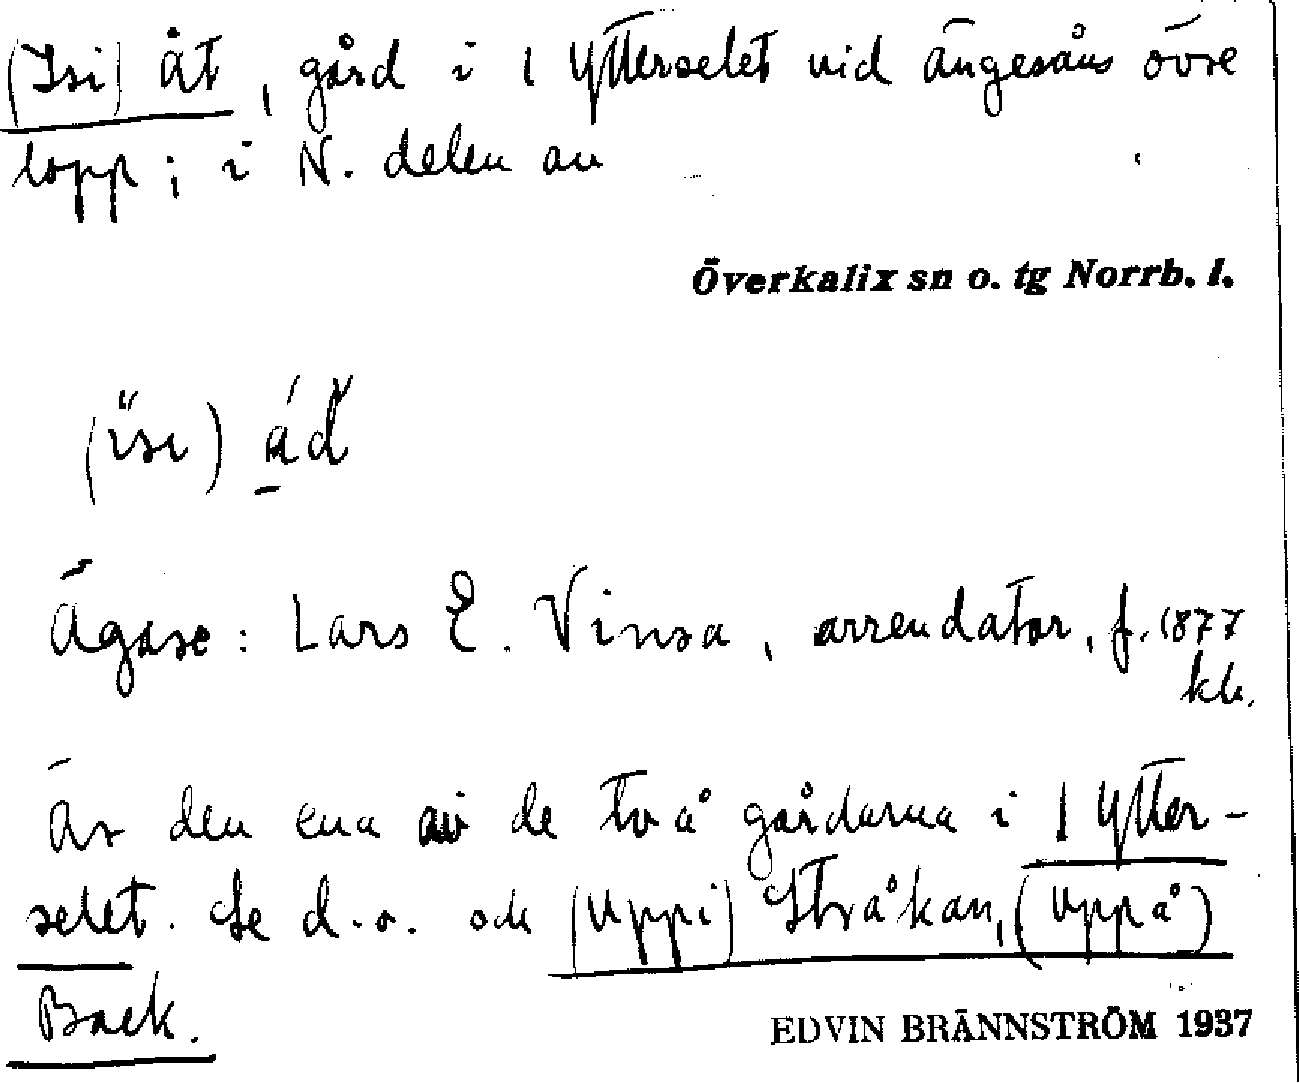 (Isi) åt, gård i 1 Ytterselet vid Ängesåns övre
lopp; i N. delen av
Överkalix sn o. tg Norrb. l.
(ısı)
Ägare: Lars E. Vinsa, arrendator, f. 1877
kk.
Är den ena av de två gårdarna i 1 Ytter-
selet. Se d.o. och (Uppi) Stråkan, (Uppå)
Back.
EDVIN BRÄNNSTRÖM 1937